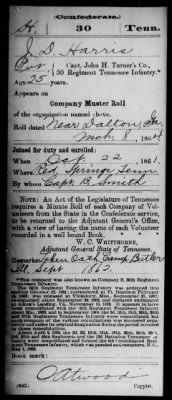 (Confederate.)
H. 30 Tenn.
J. D. Harris
Pvt, Capt. John H. Turner's Co.,
30 Regiment Tennessee Infantry.*
Age 25 years.
Appears on
Company Muster Roll
of the organization named above.
Roll dated Near Dalton, Ga
Mch 8, 1864
Joined for duty and enrolled:
When Oct. 22, 1861.
Where Red Springs Tenn
By whom Capt. B. Smith
NOTE: An Act of the Legislature of Tennessee
requires a Minute Roll of each Company of Vol-
unteers from the State in the Confederate service,
to be returned to the Adjutant General's Office,
with a view of having the name of each Volunteer
recorded in a well bound Book.
W. C. WHITTHORNE,
Adjutant General State of Tennessee.
Remarks: Taken Oath Camp Butler
Ill. Sept 1862
Book mark:
Atwood
(642) Copyist.